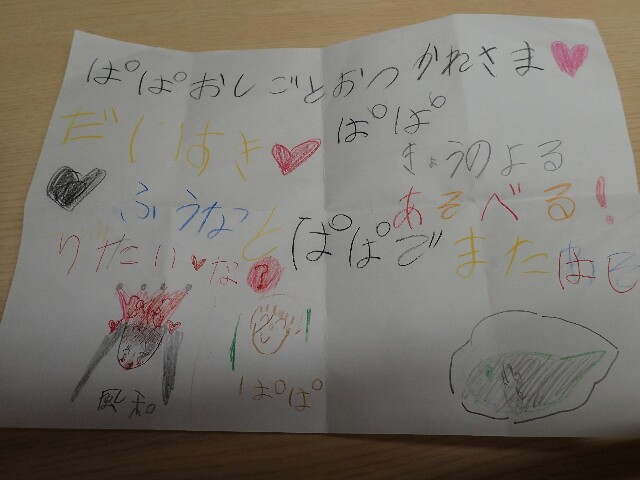 ぱぱおしごとおつかれさま
だいすき ぱぱ
きょうのよる
ふうなと あそべる!
ぱぱごまたはし
りたい なぁ
風和
ぱぱ